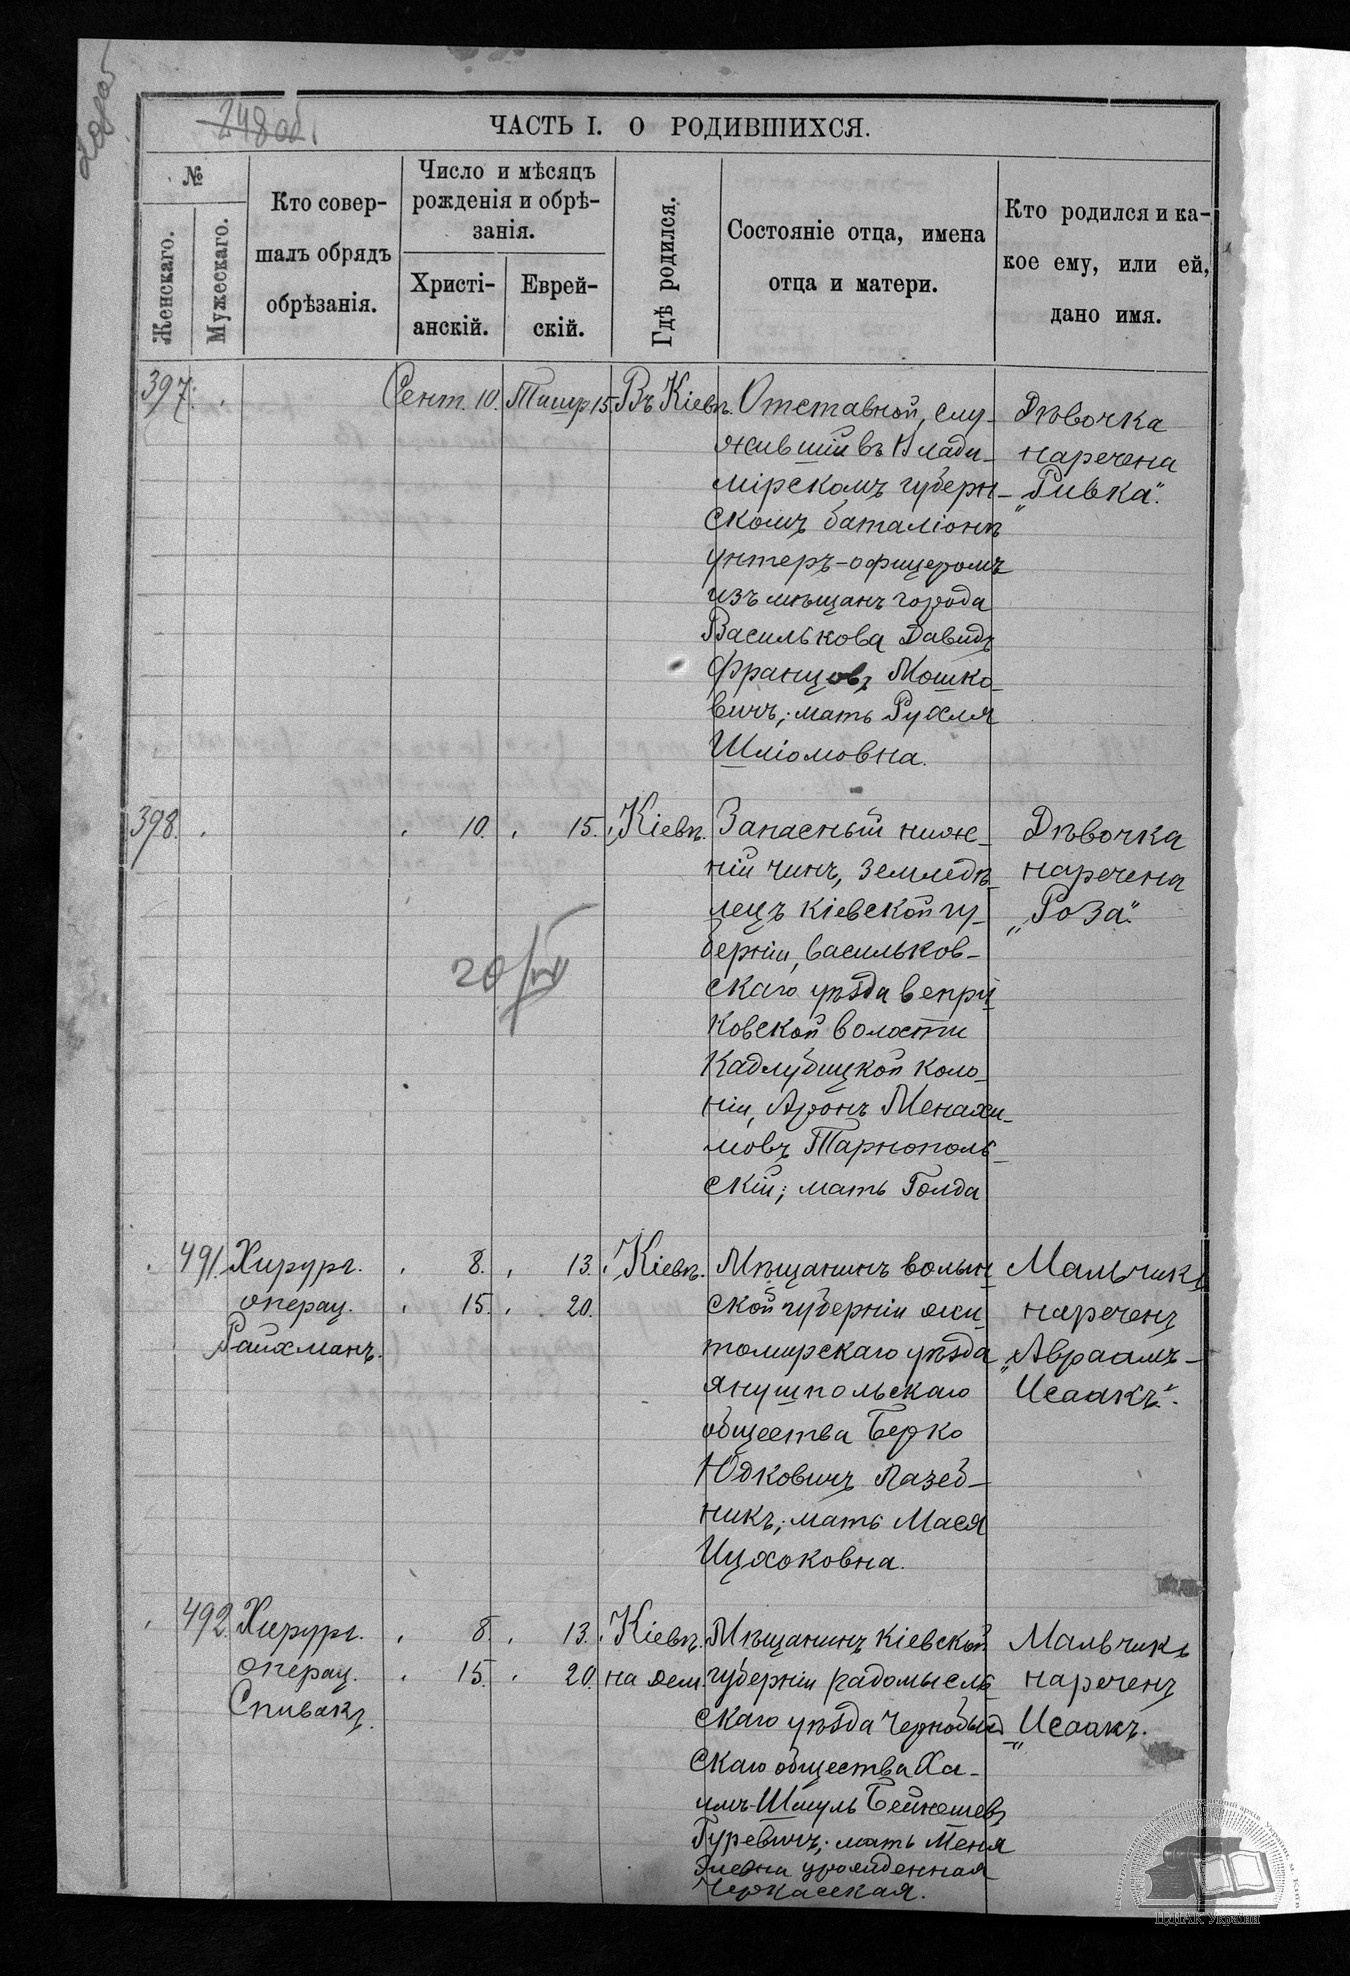 248 об.
ЧАСТЬ I. О РОДИВШИХСЯ.
№
Женскаго.
Мужескаго.
Кто совер-
шалъ обрядъ
обрѣзанія.
Число и мѣсяцъ
рожденія и обрѣ-
занія.
Христі-
анскій.
Еврей-
скій.
Гдѣ родился.
Состояніе отца, имена
отца и матери.
Кто родился и ка-
кое ему, или ей,
дано имя.
397.
Сент. 10.
Тишр. 15.
Въ Кіевѣ.
Отставной, слу-
жившій въ Влади-
мірскомъ губерн-
скомъ баталіонѣ
унтеръ-офицеромъ
изъ мѣщанъ города
Василькова Давидъ
Францовъ Мошко-
вичъ; мать Рухля
Шліомовна.
Дѣвочка
наречена
„Ривка“.
398.
10.
15.
Кіевѣ.
Запасный ниж-
ній чинъ, земледѣ-
лецъ Кіевской гу-
берніи, Васильков-
скаго уѣзда Вепри-
ковской волости
Кадлубицкой коло-
ніи, Аронъ Менахи-
мовъ Тарнополь-
скій; мать Голда
Дѣвочка
наречена
„Роза“.
20/VII
491.
Хирург.
операц.
Райхманъ.
8.
15.
13.
20.
Кіевѣ.
Мѣщанинъ волын-
ской губерніи жи-
томирскаго уѣзда
янушпольскаго
общества Берко
Юдковичъ Лазеб-
никъ; мать Мася
Ицхоковна.
Мальчикъ
нареченъ
„Авраамъ-
Исаакъ“.
492.
Хирург.
операц.
Спивакъ.
8.
15.
13.
20.
Кіевѣ.
на Дем.
Мѣщанинъ Кіевской
губерніи радомысль
скаго уѣзда Чернобыл
скаго общества Ха-
имъ-Шмуль Бейнешевъ
Гуревичъ; мать Меня
Элевна урожденная
Черкасская.
Мальчикъ
нареченъ
„Исаакъ.
ЦДІАК України